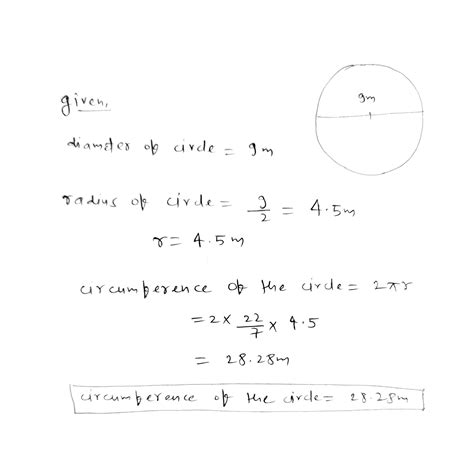 9m
given,
diameter of circle = 9m
radius of circle = 9/2 = 4.5m
r = 4.5m
circumference of the circle = 2πr
= 2 x 22/7 x 4.5
= 28.28m
circumference of the circle = 28.28m